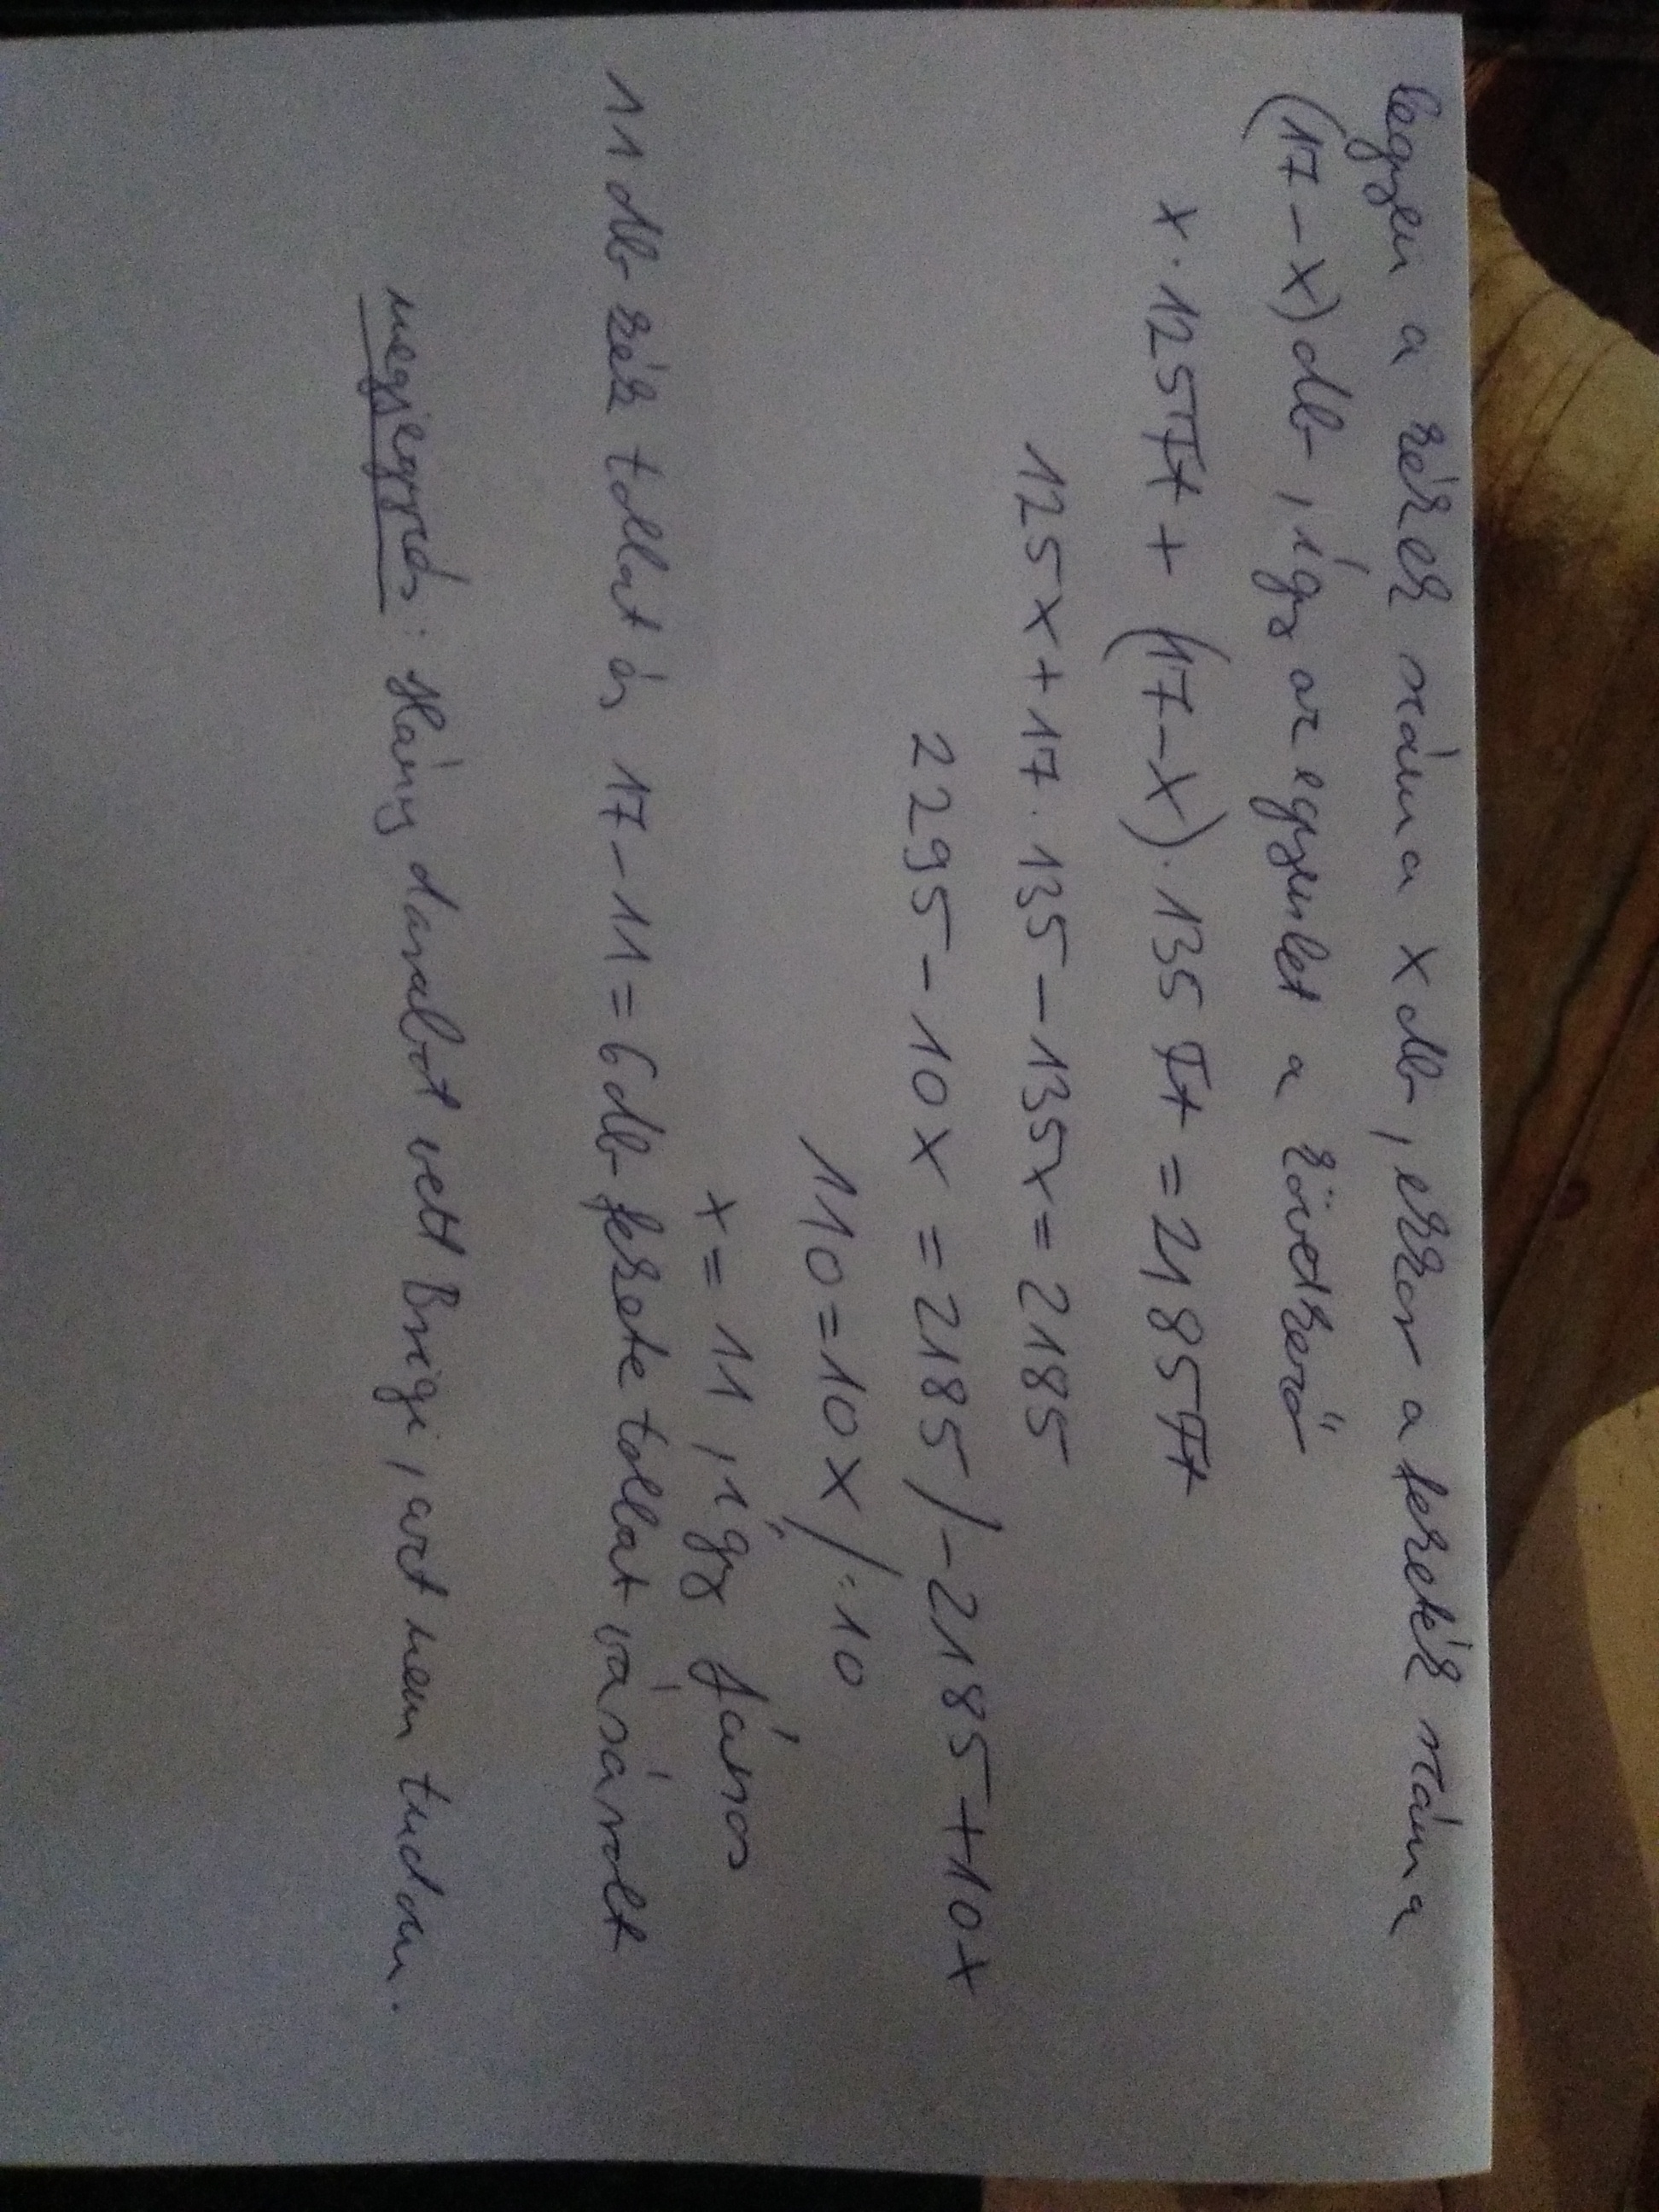 legyen a kékek száma x db, ekkor a feketék száma
(17-x) db, így az egyenlet a következő
x·125Ft + (17-x)·135 Ft = 2185Ft
125x+17·135-135x=2185
2295-10x=2185/-2185+10x
110=10x/:10
x=11, így János
11 db kék tollat és 17-11=6 db fekete tollat vásárolt
megjegyzés: Hány darabot vett Brigi, azt nem tudom.